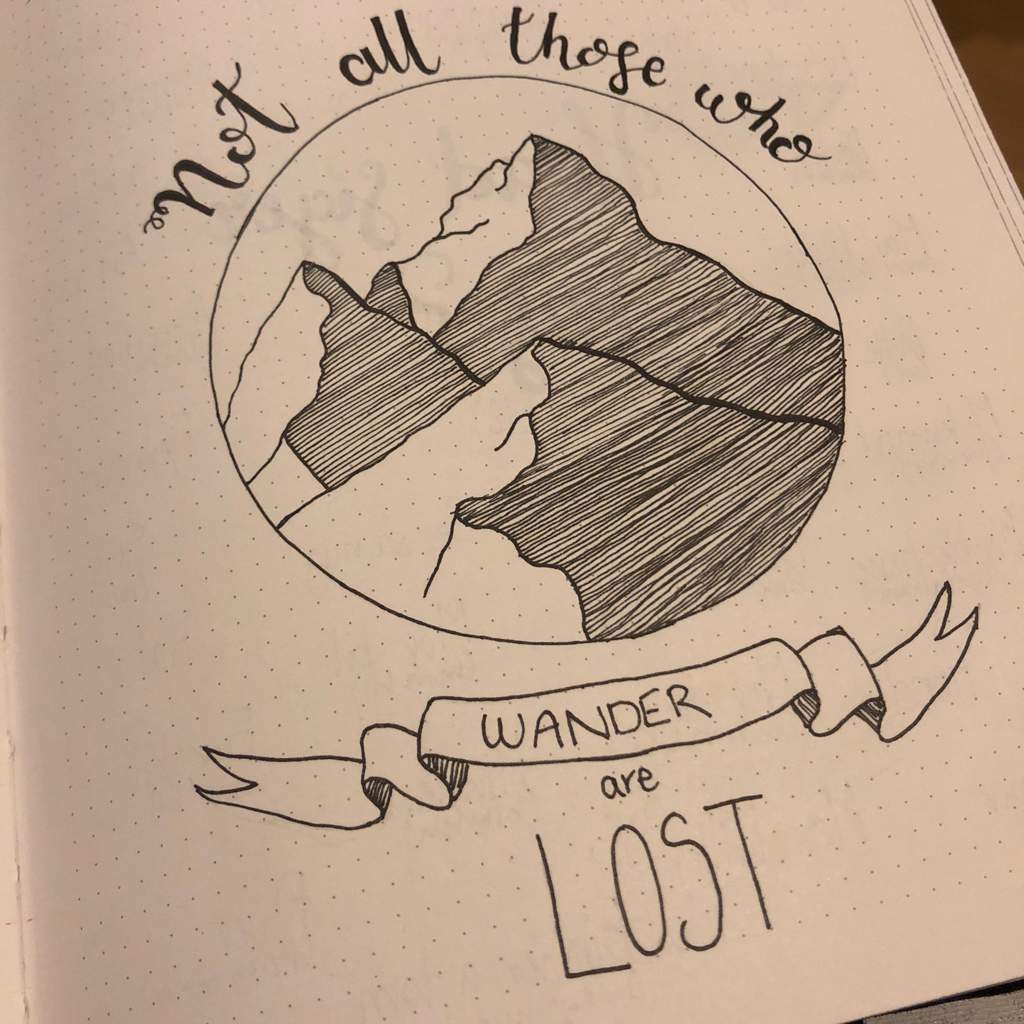 Not all those who
WANDER
are
LOST